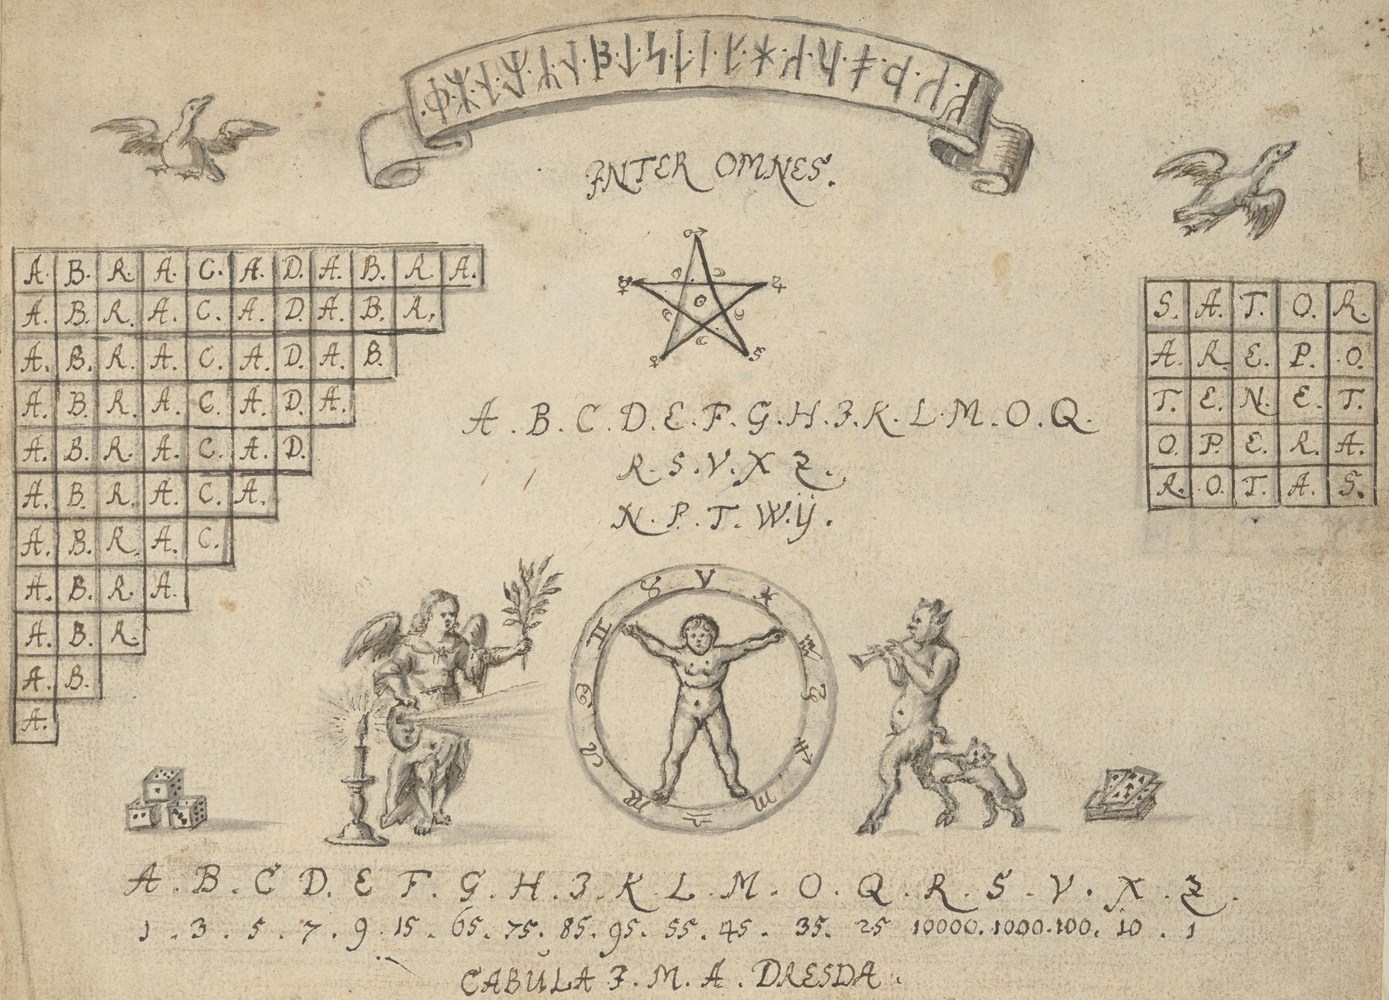 INTER OMNES.
A. B. R. A. C. A. D. A. B. R. A.
A. B. R. A. C. A. D. A. B. R.
A. B. R. A. C. A. D. A. B.
A. B. R. A. C. A. D. A.
A. B. R. A. C. A. D.
A. B. R. A. C. A.
A. B. R. A. C.
A. B. R. A.
A. B. R.
A. B.
A.
A. B. C. D. E. F. G. H. I. K. L. M. O. Q.
R. S. V. X Z.
N. P. T. W. ÿ.
S. A. T. O. R.
A. R. E. P. O.
T. E. N. E. T.
O. P. E. R. A.
R. O. T. A. S.
A. B. C D. E F. G. H. I. K. L. M. O. Q. R. S. V. X. Z.
1. 3. 5. 7. 9. 15. 65. 75. 85. 95. 55. 45. 35. 25 10000. 1000. 100. 10. 1
CABŬLA I. M. A. DRESDA.